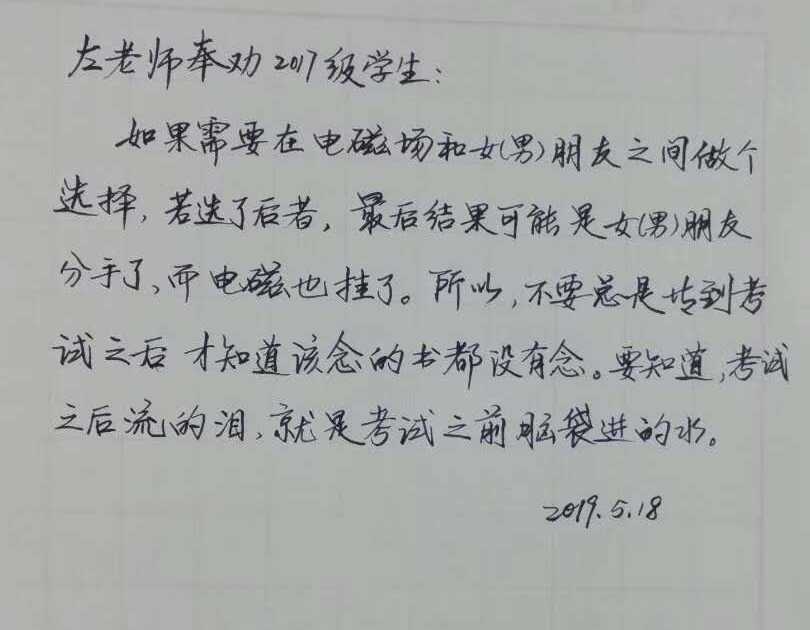 左老师奉劝2017级学生：
如果需要在电磁场和女(男)朋友之间做个
选择，若选了后者，最后结果可能是女(男)朋友
分手了、而电磁也挂了。所以，不要总是等到考
试之后才知道该念的书都没有念。要知道，考试
之后流的泪，就是考试之前脑袋进的水。
2019.5.18